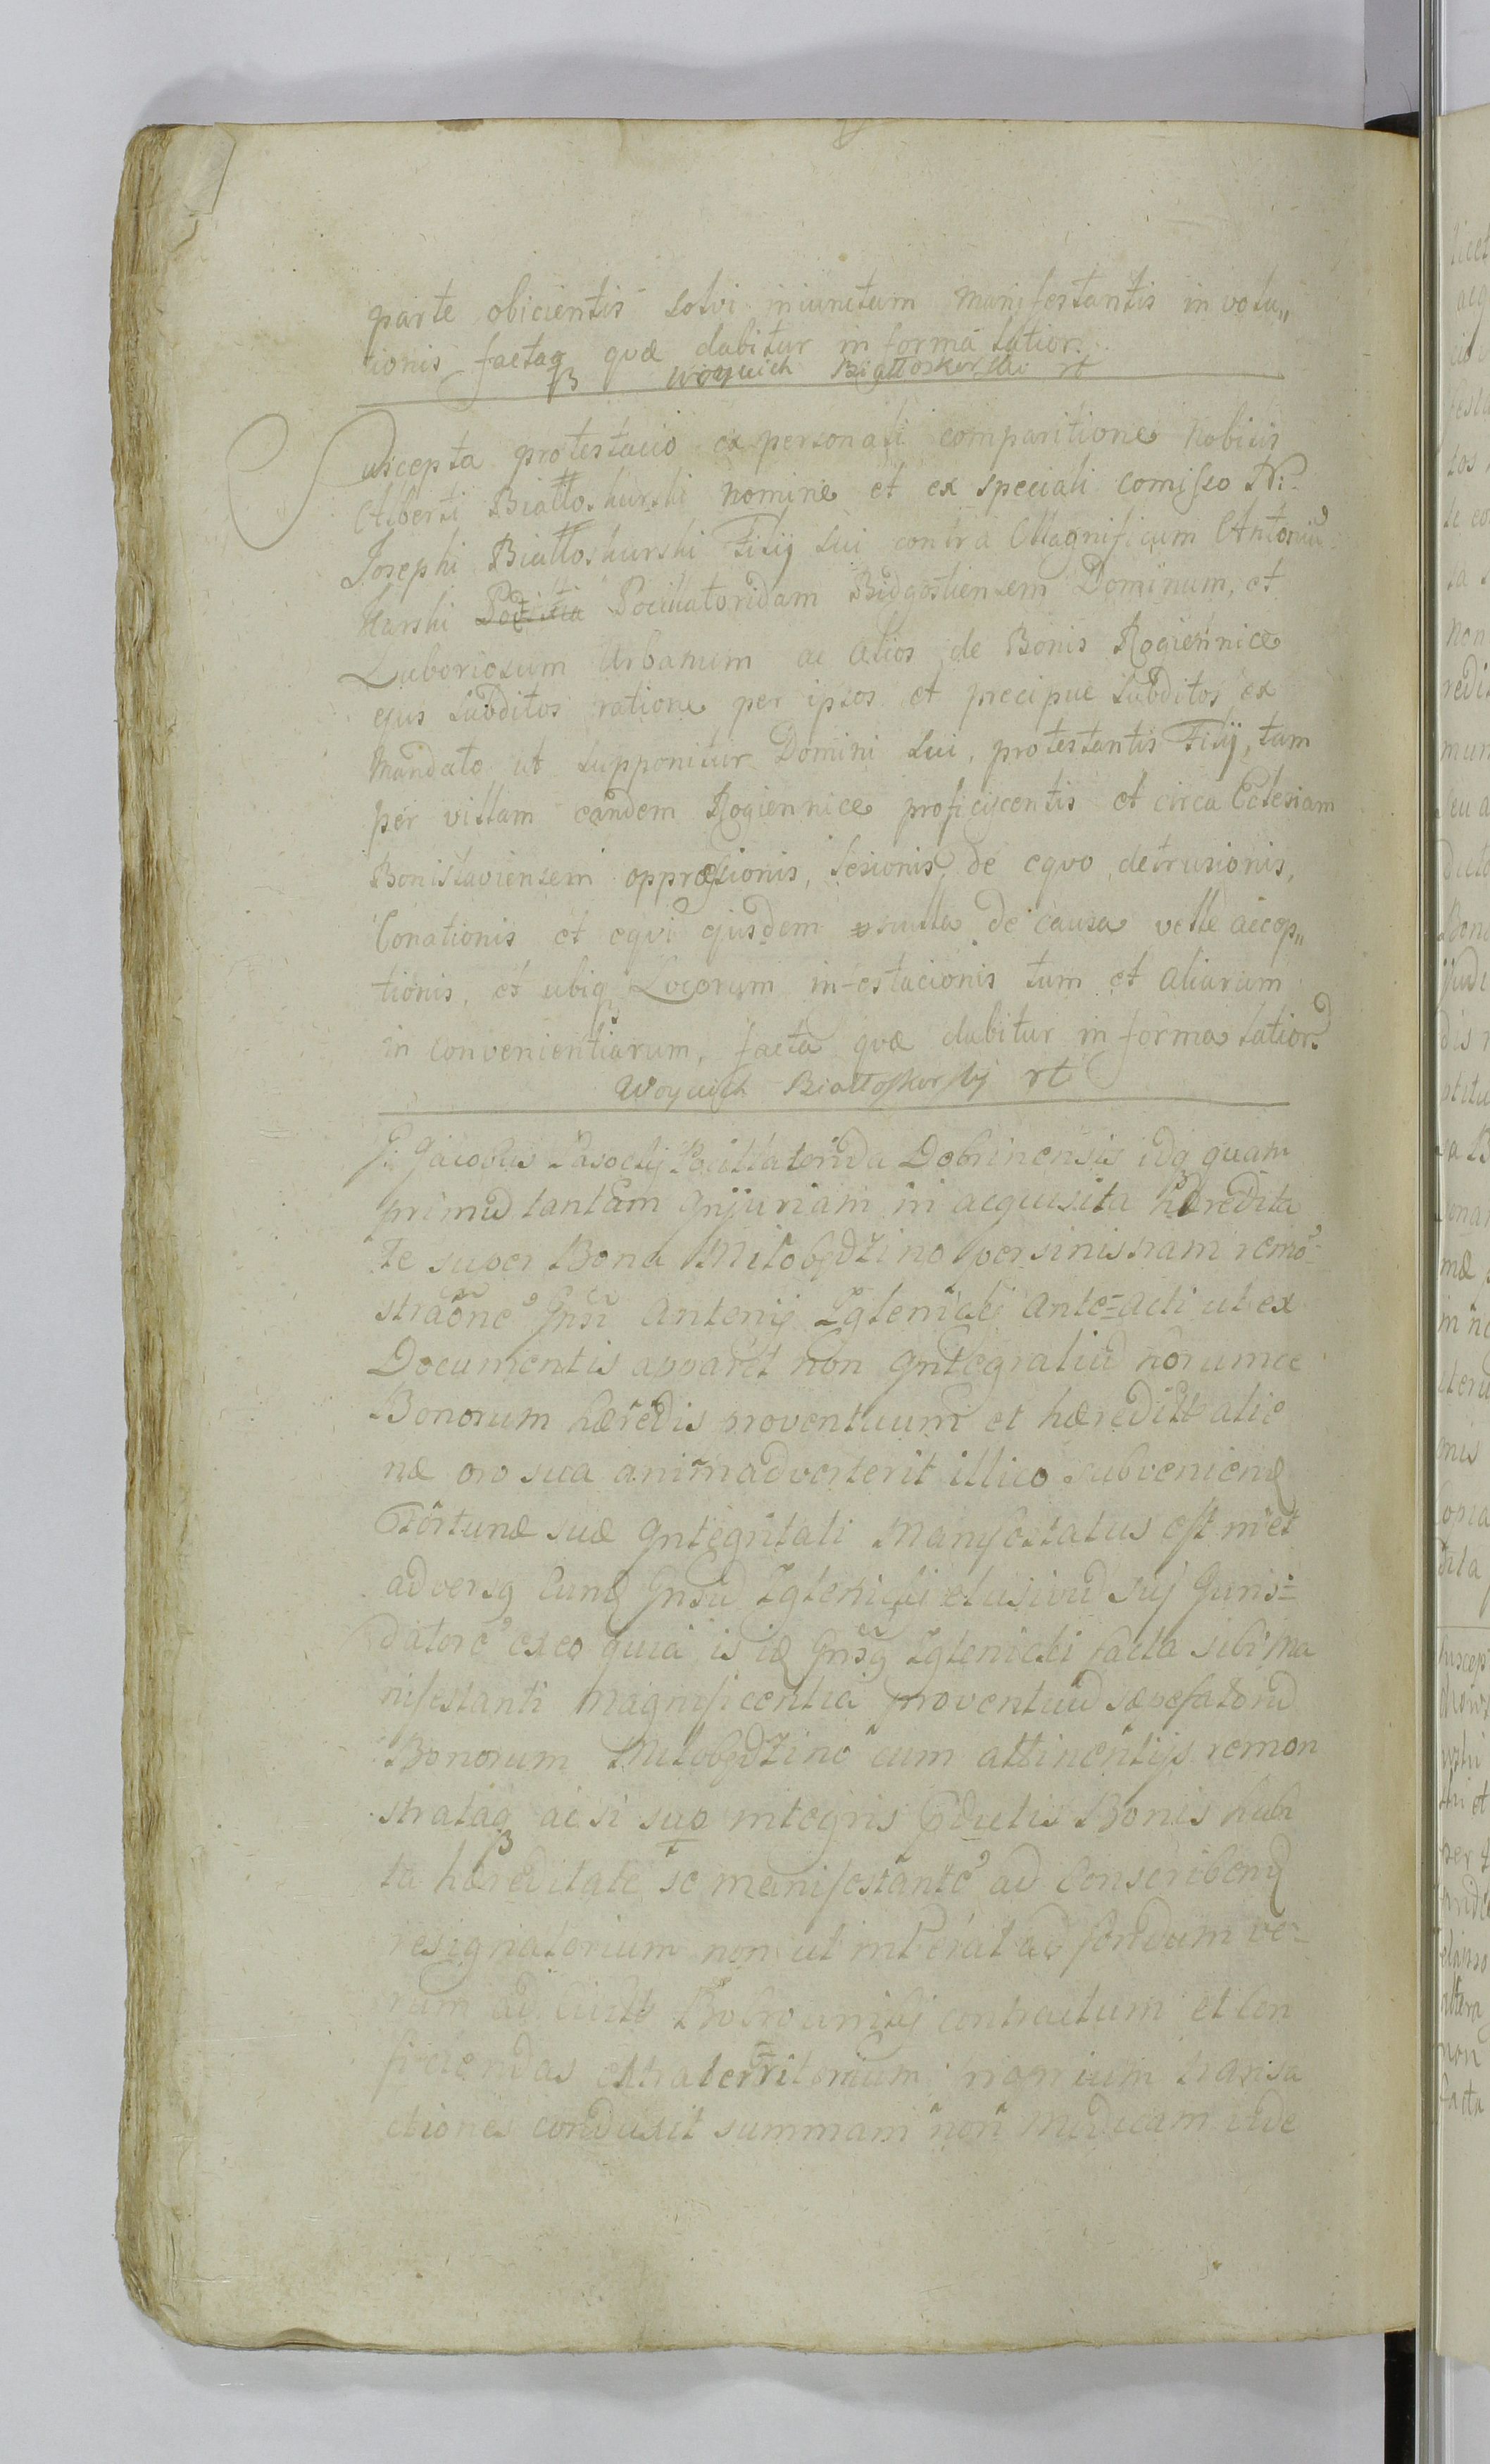 parte obicientis solvi iniunctum manifestantis in votu„
tionis factaq quæ dabitur in forma latior.
Woyciech Białłoskorski rt
Suscepta protestacio ex personali comparitione Nobilis
Alberti Białłoskurski nomine et ex speciali comisso N:
Josephi Białłoskurski Filij sui contra Magnificum Antoniu
Karski Pocillatoridam Bidgostiensem Dominum, et
Laboriosum Urbanum ac alios de Bonis Rogiennice
ejus subditos ratione per ipsos et precipue subditos ex
mandato ut supponitur Domini sui, protestantis Filij, tam
per villam eandem Rogiennice proficiscentis et circa Eclesiam
Bonislaviensem oppræsionis, lesionis, de equo detrusionis,
Conationis et equi ejusdem nulla de causa velle accep„
tionis, et ubiq Locorum in-estacionis tum et aliarum
in convenientiarum, facta quæ dabitur in forma latior.
Woyciech Białłoskorskij rt
G: Jacobus Lasockij Pocillatorida Dobrinensis idq quam
primu tantam Injuriam in acquisita hæredita
te super Bona Miłobędzino per sinistram remo-
straone Gnsi Antonij Zglenicki Ante-acti ut ex
Documentis apparet non Integraliu horumce
Bonorum hæredis proventuum et hæreditt alie
næ pro sua animadverterit illico subveniend
Fortunæ suæ Integritati Manifestatus est met
adversq Eund Gnsu Zglenicki elusivu sui Juris-
datore ex eo quia is id Gnsq Zglenicki facta sibi Ma
nifestanti magnificentia proventuu sæpefatoru
Bonorum Miłobędzino cum attinentijs remon
strataq ac si sup integris pdictis Bonis habi
ta hæreditate se manifestante ad Conscribend
resignatorium non ut intrat ad fondum ve-
rum ad contractum et con
ficiendas extraterritorium transa
ctiones conduxit summam non modicam inde